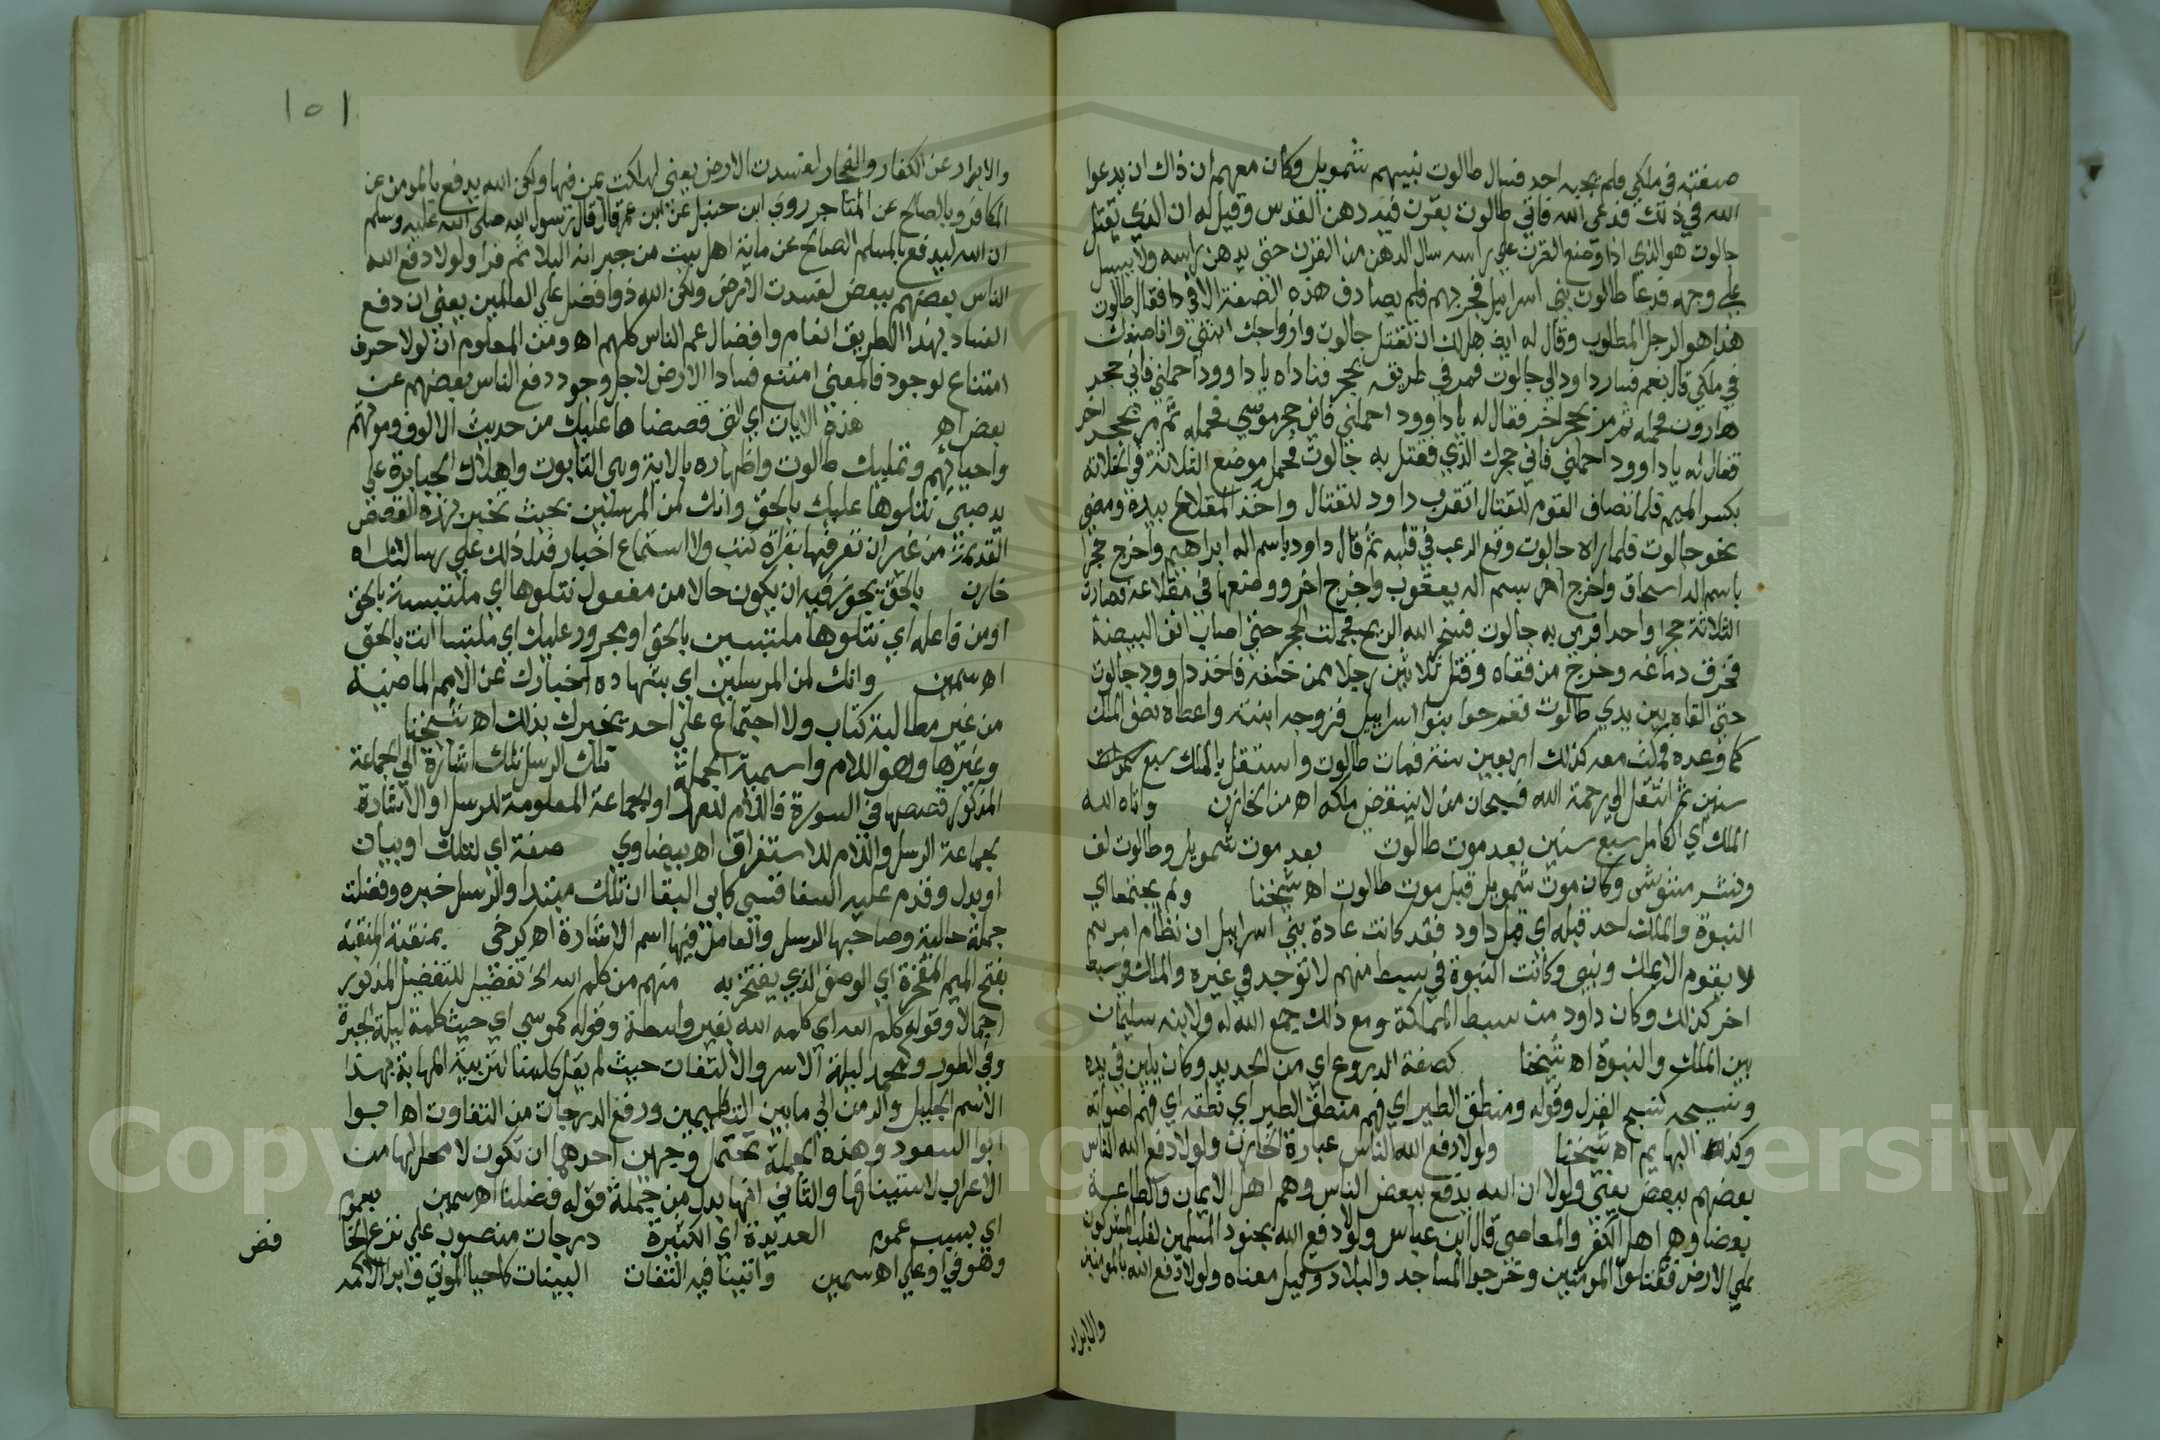 صفته في ملكي فلم يجبه احد فسال طالوت نبيهم شمويل وكان معهم ان ذاك ان يدعوا
الله في ذلك فدعى الله فاتي طالوت بقرن فيه دهن القدس وقيل له ان الذي يقتل
جالوت هو الذي اذا وضع القرن علي راسه سال الدهن من القرن حتى يدهن راسه ولا يسيل
علي وجهه فدعا طالوت بني اسراييل فجربهم فلم يصادف هذه الصفة الا في دا فقال طالون
هذا هو الرجل المطلوب وقال له ايض هل لك ان تقتل جالوت وازواجك ابنتي واناصفك
في ملكي قال نعم فسار داود الي جالوت فمر في طريقه بحجر فناداه يا داوود احملني فاني حجر
هارون فحمله ثم مر بحجر اخر فقال له يا داوود احملني فاني حجر موسي فحمله ثم مر بحجر اخر
فقال له يا داوود احملني فاني حجرك الذي فقتل به جالوت فحمله موضع الثلاثة في مخلاته
بكسر الميم فلما تصاف القوم للقتال انقرب داود للقتال واخذ المقلاع بيده ومضي
نحو جالوت فلما راه جالوت وقع الرعب في قلبه ثم قال داود باسم اله ابراهيم واخرج حجرا
باسم اله اسحاق واخرج اهر بسم اله يعقوب واخرج اخر ووضعها في مقلاعه فصارت
الثلاثة حجرا واحدا فرمي به جالوت فسخر الله الريح فحملت الحجر حتى اصاب انف البيضة
فخرق دماغه وخرج من قفاه وقتل ثلاثين رجلا ممن خلفه فاخذ داوود جالوت
حتى القاه بين يدي طالوت ففرحوا بنوا اسراييل فزوجه ابنته واعطاه نصف الملك
كما وعده فمكث معه كذلك اربعين سنة فمات طالوت واستقل بالملك سبع
سنين ثم انتقل الي رحمة الله فسبحان من لا ينقرض ملكه اه من الخازن واتاه الله
الملك اي الكامل سبع سنين بعد موت طالوت بعد موت شمويل وطالوت لف
ونشر مشوش وكان موت شمويل قبل موت طالوت اه شيخنا ولم يجتمعا اي
النبوة والملك لاحد قبله اي قبل داود فقد كانت عادة بني اسراييل ان نظام امرهم
لا يقوم الا بملك ونبي وكانت النبوة في سبط منهم لا توجد في غيره والملك في سبط
اخر كذلك وكان داود من سبط المملكة ومع ذلك جمع الله له ولابنه سليمان
بين الملك والنبوة اه شيخنا كصنعة الدروع اي من الحديد وكان يلين في يده
وينسجه كنسج الغزل وقوله ومنطق الطير اي فهم منطق الطير اي نطقه اي فهم اصواته
وكذا البهايم اه شيخنا ولولا دفع الله الناس عبارة الخازن ولولا دفع الله الناس
بعضهم ببعض يعني ولولا ان الله يدفع ببعض الناس وهم اهل الايمان والطاعة
بعضا وهم اهل الكفر والمعاصي قال ابن عباس ولولا دفع الله بجنود المسلمين لغلب المشركون
علي الارض فقتلوا المومنين وخرجوا المساجد والبلاد وقيل معناه ولولا دفع الله بالمومنين
والابرار
١٥١
والابرار عن الكفار والفجار لفسدت الارض يعني لهلكت بمن فيها ولكن الله يدفع بالمومن عن
الكافر وبالصالح عن الفاجر روي ابن حنبل عن ابن عمر قال قال رسول الله صلى الله عليه وسلم
ان الله ليدفع بالمسلم الصالح عن ماية اهل بيت من جيرانه البلا ثم قرا ولولا دفع الله
الناس بعضهم ببعض لفسدت الارض ولكن الله ذو فضل علي العالمين يعني ان دفع
الفساد بهذا الطريق انعام وافضال عم الناس كلهم اه ومن المعلوم ان لولا حرف
امتناع لوجود فالمعني امتنع فساد الارض لاجل وجود دفع الناس بعضهم عن
بعض اه هذه الايات اي التي قصصناها عليك من حديث الالوف وموتهم
واحيايهم وتمليك طالوت واظهاره بالاية وهي التابوت واهلاك الجبابرة علي
يد صبي نتلوها عليك بالحق وانك لمن المرسلين بحيث تخبر بهذه القصص
القديمة من غير ان تعرفها بقراة كتب ولا استماع اخبار فدل ذلك علي رسالتك اه
خازن بالحق يجوز فيه ان يكون حالا من مفعول نتلوها اي ملتبسة بالحق
اومن فاعله اي نتلوها ملتبسين بالحق اومجرور عليك اي ملتبسا انت بالحق
اه سمين وانك لمن المرسلين اي بشهادة اخبارك عن الامم الماضية
من غير مطالبة كتاب ولا اجتماع علي احد يخبرك بذلك اه شيخنا
وغيرها وهو اللام واسمية الجملة تلك الرسل تلك اشارة الي الجماعة
المذكور قصصها في السورة فاللام للعهد او الجماعة المعلومة للرسل او الاشارة
بجماعة الرسل واللام للاستغراق اه بيضاوي صفة اي لتلك او بيان
او بدل وقدم عليه السفاقسي كابي البقا ان تلك مبتدا والرسل خبره وفضلت
جملة حالية وصاحبها الرسل والعامل فيها اسم الاشارة اه كرخي بمنقبة المنقبة
بفتح الميم المفخرة اي الوصف الذي يفتخر به منهم من كلم الله الخ تفصيل للتفضيل المذكور
اجمالا وقوله كلم الله اي كلمه الله بغير واسطة وقوله كموسي اي حيث كلمه ليلة الحيرة
وفي الطور ومحمد ليلة الاسرا والالتفات حيث لم يقل كلمنا لتربية المهابة بهذا
الاسم الجليل والرمز الي ما بين التكليمين ورفع الدرجات من التفاوت اه ابوا
ابوا السعود وهذه الجملة تحتمل وجهين احدهما ان تكون لا محل لها من
الاعراب لاستينافها والثاني انها بدل من جملة قوله فضلنا اه سمين بعموم
اي بسبب عموم العديدة اي الكثيرة درجات منصوب علي نزع الخا
فض
وهو في او علي اه سمين واتينا فيه التفات البينات كاحيا الموتي وابرا الاكمه